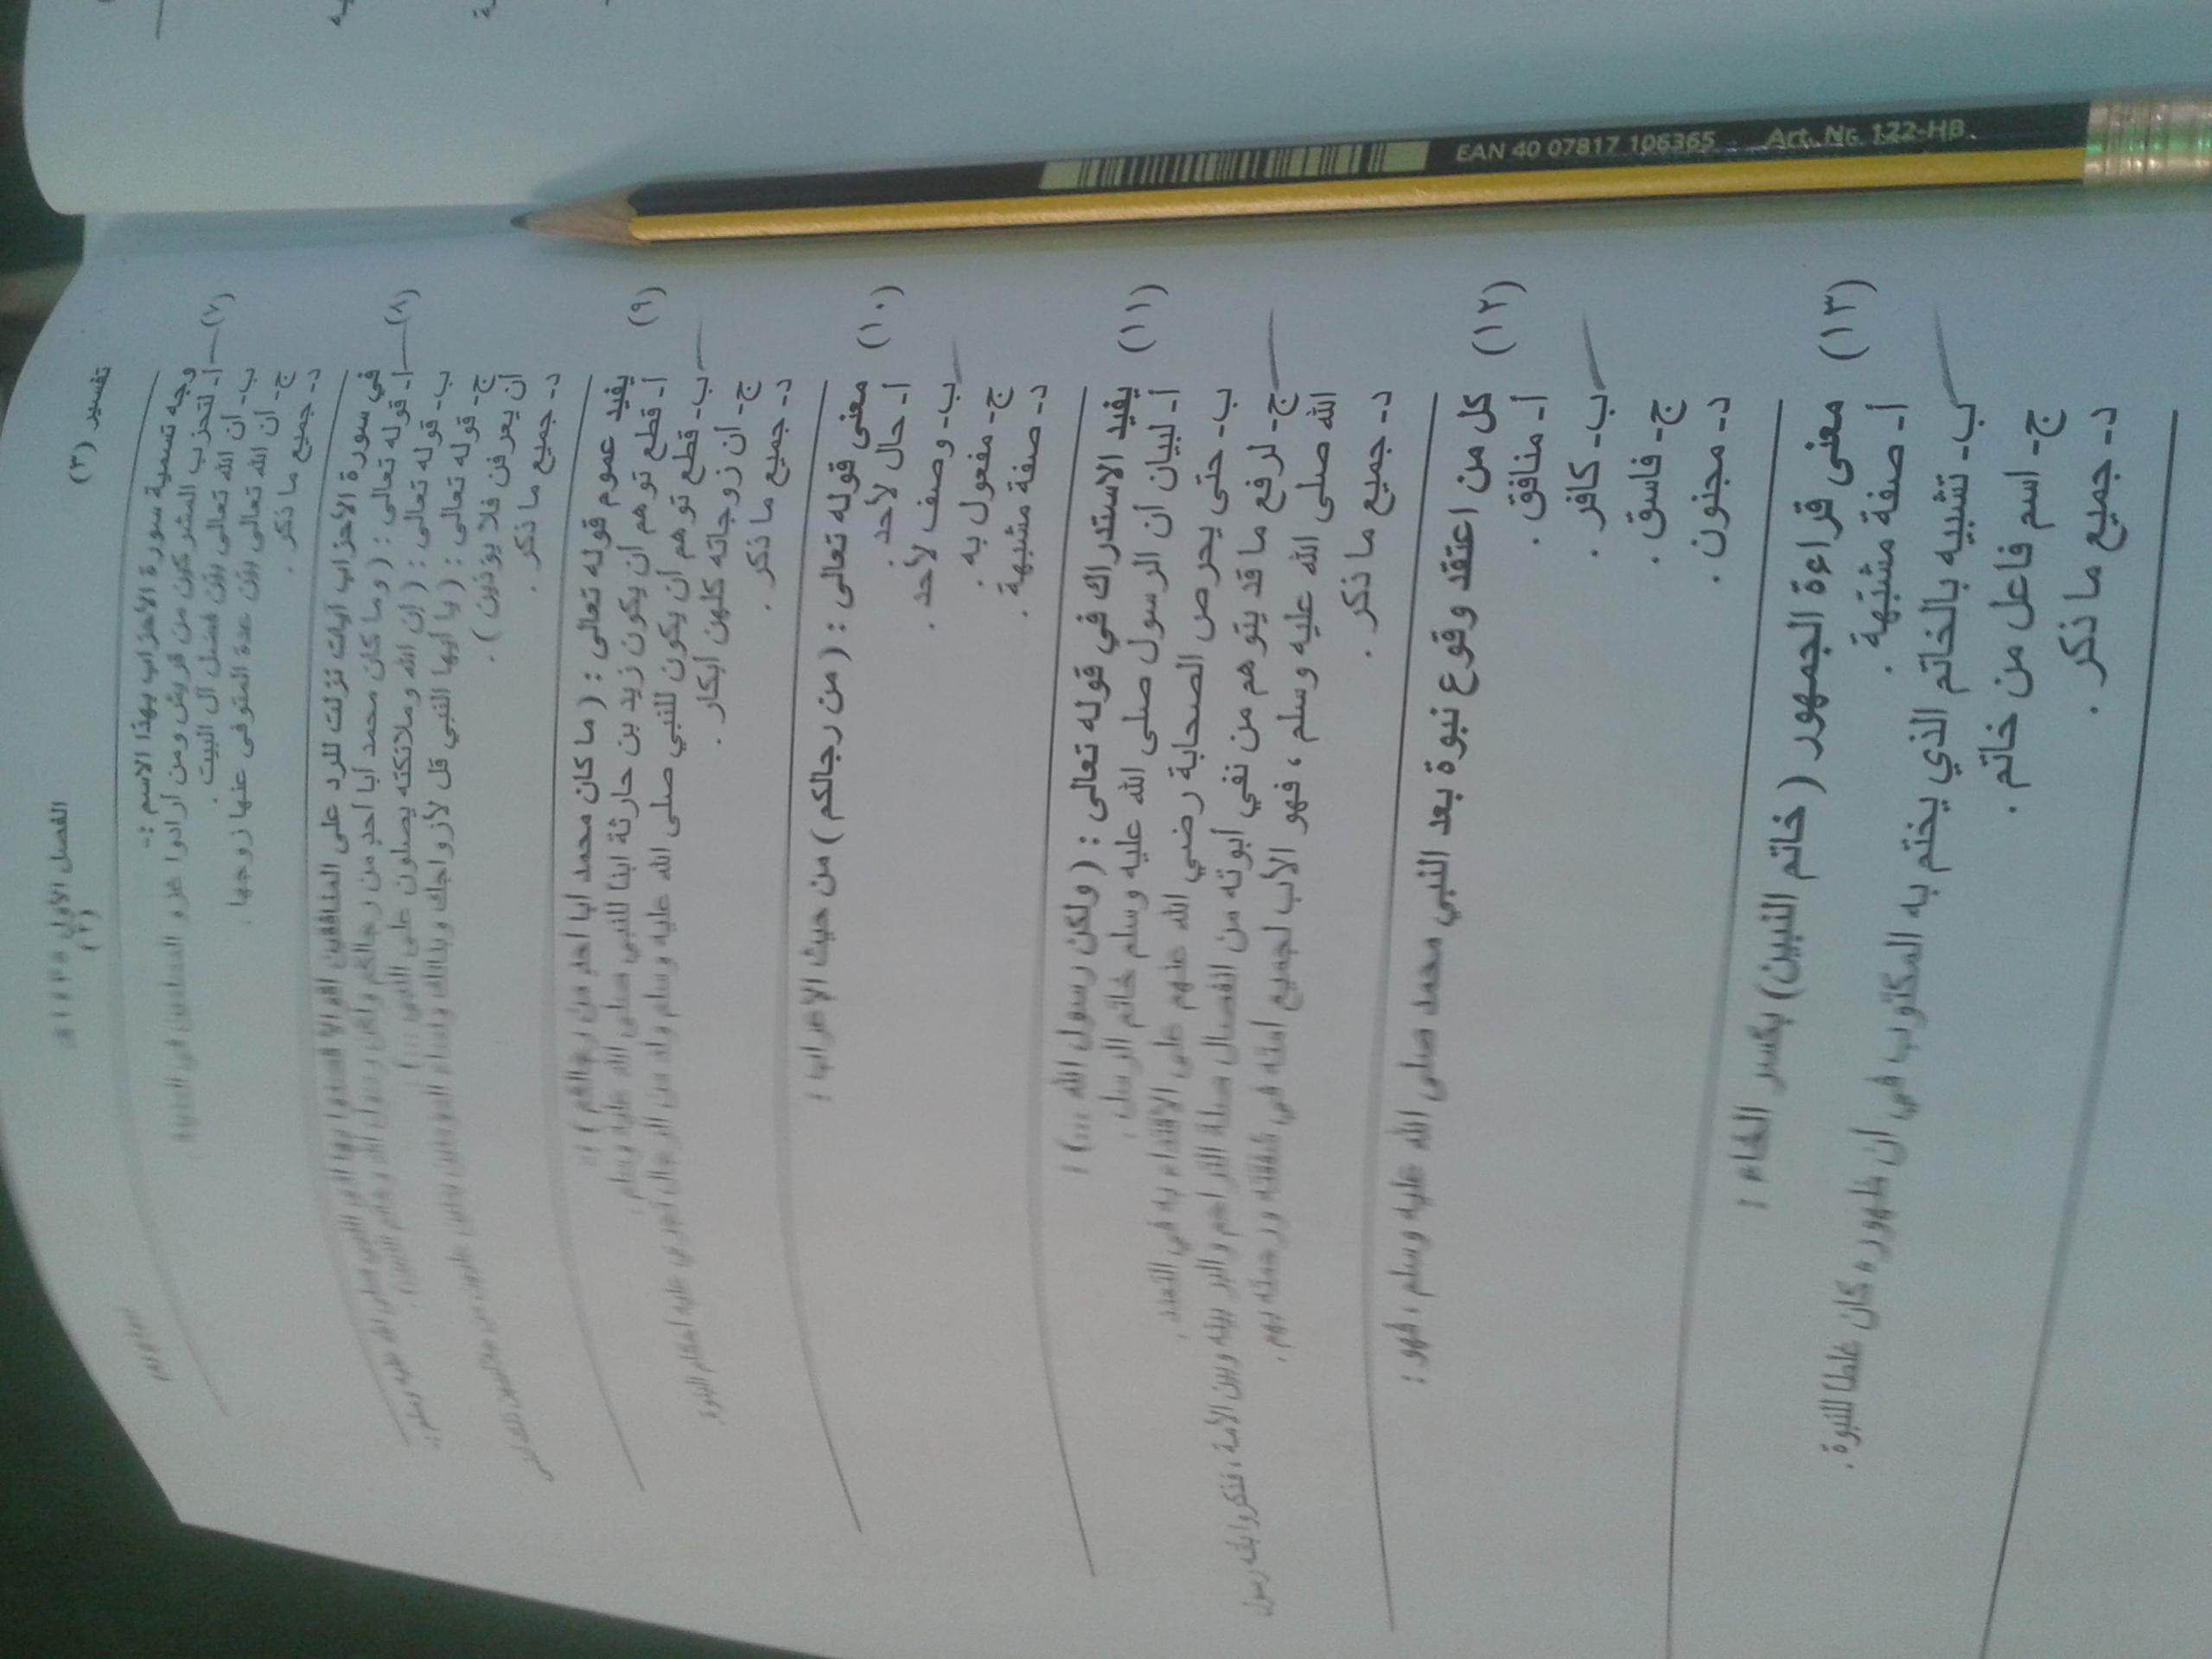 تفسير (٣)
الفصل الأول
(٢)
(٧) وجه تسمية سورة الأحزاب بهذا الاسم :-
أ- لتحزب المشركين من قريش ومن أرادوا غزو المسلمين في المدينة.
ب- أن الله تعالى بيّن فضل آل البيت.
ج- أن الله تعالى بيّن عدة المتوفى عنها زوجها.
د- جميع ما ذكر.
(٨) في سورة الأحزاب آيات نزلت للرد على المنافقين
أ- قوله تعالى : ( وما كان محمد أبا أحد من رجالكم ولكن رسول الله وخاتم النبيين).
ب- قوله تعالى : ( إن الله وملائكته يصلون على النبي ...)
ج- قوله تعالى : ( يا أيها النبي قل لأزواجك وبناتك ونساء المؤمنين يدنين عليهن من جلابيبهن ذلك أدنى
أن يعرفن فلا يؤذين ) .
د- جميع ما ذكر .
(٩) يفيد عموم قوله تعالى : ( ما كان محمد أبا أحد من رجالكم ) :
أ- قطع توهم أن يكون زيد بن حارثة ابنا للنبي صلى الله عليه وسلم.
ب- قطع توهم أن يكون للنبي صلى الله عليه وسلم ولد من الرجال تجري عليه أحكام البنوة
ج- أن زوجاته كلهن أبكار .
د- جميع ما ذكر .
(١٠) معنى قوله تعالى : ( من رجالكم ) من حيث الإعراب :
أ- حال لأحد.
ب- وصف لأحد .
ج- مفعول به .
د- صفة مشبهة .
(١١) يفيد الاستدراك في قوله تعالى : ( ولكن رسول الله ...) :
أ- لبيان أن الرسول صلى الله عليه وسلم خاتم الرسل .
ب- حتى يحرص الصحابة رضي الله عنهم على الاقتداء به في التعدد .
ج- لرفع ما قد يتوهم من نفي أبوته من انفصال صلة التراحم والبر بينه وبين الأمة ، فذكروا بأنه رسول
الله صلى الله عليه وسلم ، فهو الأب لجميع أمته في شفقته ورحمته بهم .
د- جميع ما ذكر .
(١٢) كل من اعتقد وقوع نبوة بعد النبي محمد صلى الله عليه وسلم ، فهو :
أ- منافق .
ب- كافر .
ج- فاسق .
د- مجنون .
(١٣) معنى قراءة الجمهور ( خاتم النبيين) بكسر التاء :
أ- صفة مشبهة .
ب- تشبيه بالخاتم الذي يختم به المكتوب في أن ظهوره كان غلقا للنبوة .
ج- اسم فاعل من خاتم .
د- جميع ما ذكر .
EAN 40 07817 106365 Art. Nr. 122-HB